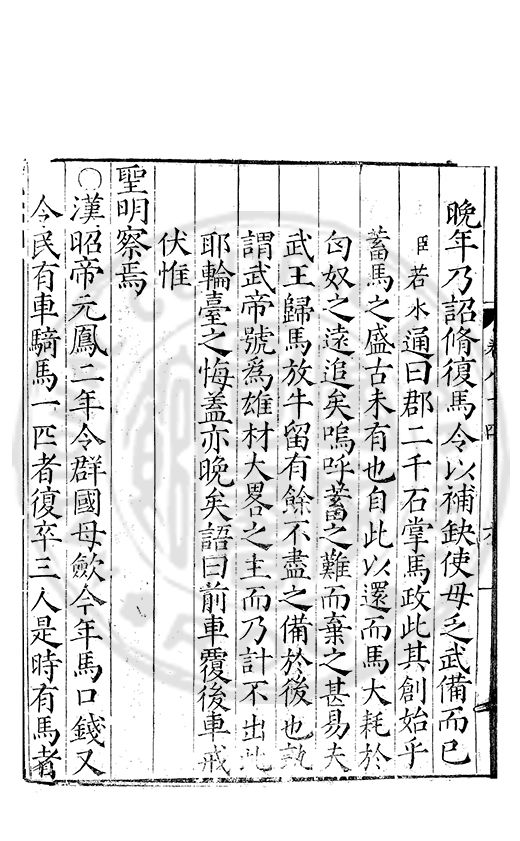 晚年乃詔脩復馬令以補缺使毋乏武備而已
臣若水通曰郡二千石掌馬政此其創始乎
蓄馬之盛古未有也自此以還而馬大耗於
匈奴之遠追矣嗚呼蓄之難而棄之甚易夫
武王歸馬放牛留有餘不盡之備於後也孰
謂武帝號為雄材大畧之主而乃計不出此
耶輪臺之悔蓋亦晚矣語曰前車覆後車戒
伏惟
聖明察焉
○漢昭帝元鳳二年令群國毋歛今年馬口錢又
令民有車騎馬一匹者復卒三人是時有馬者